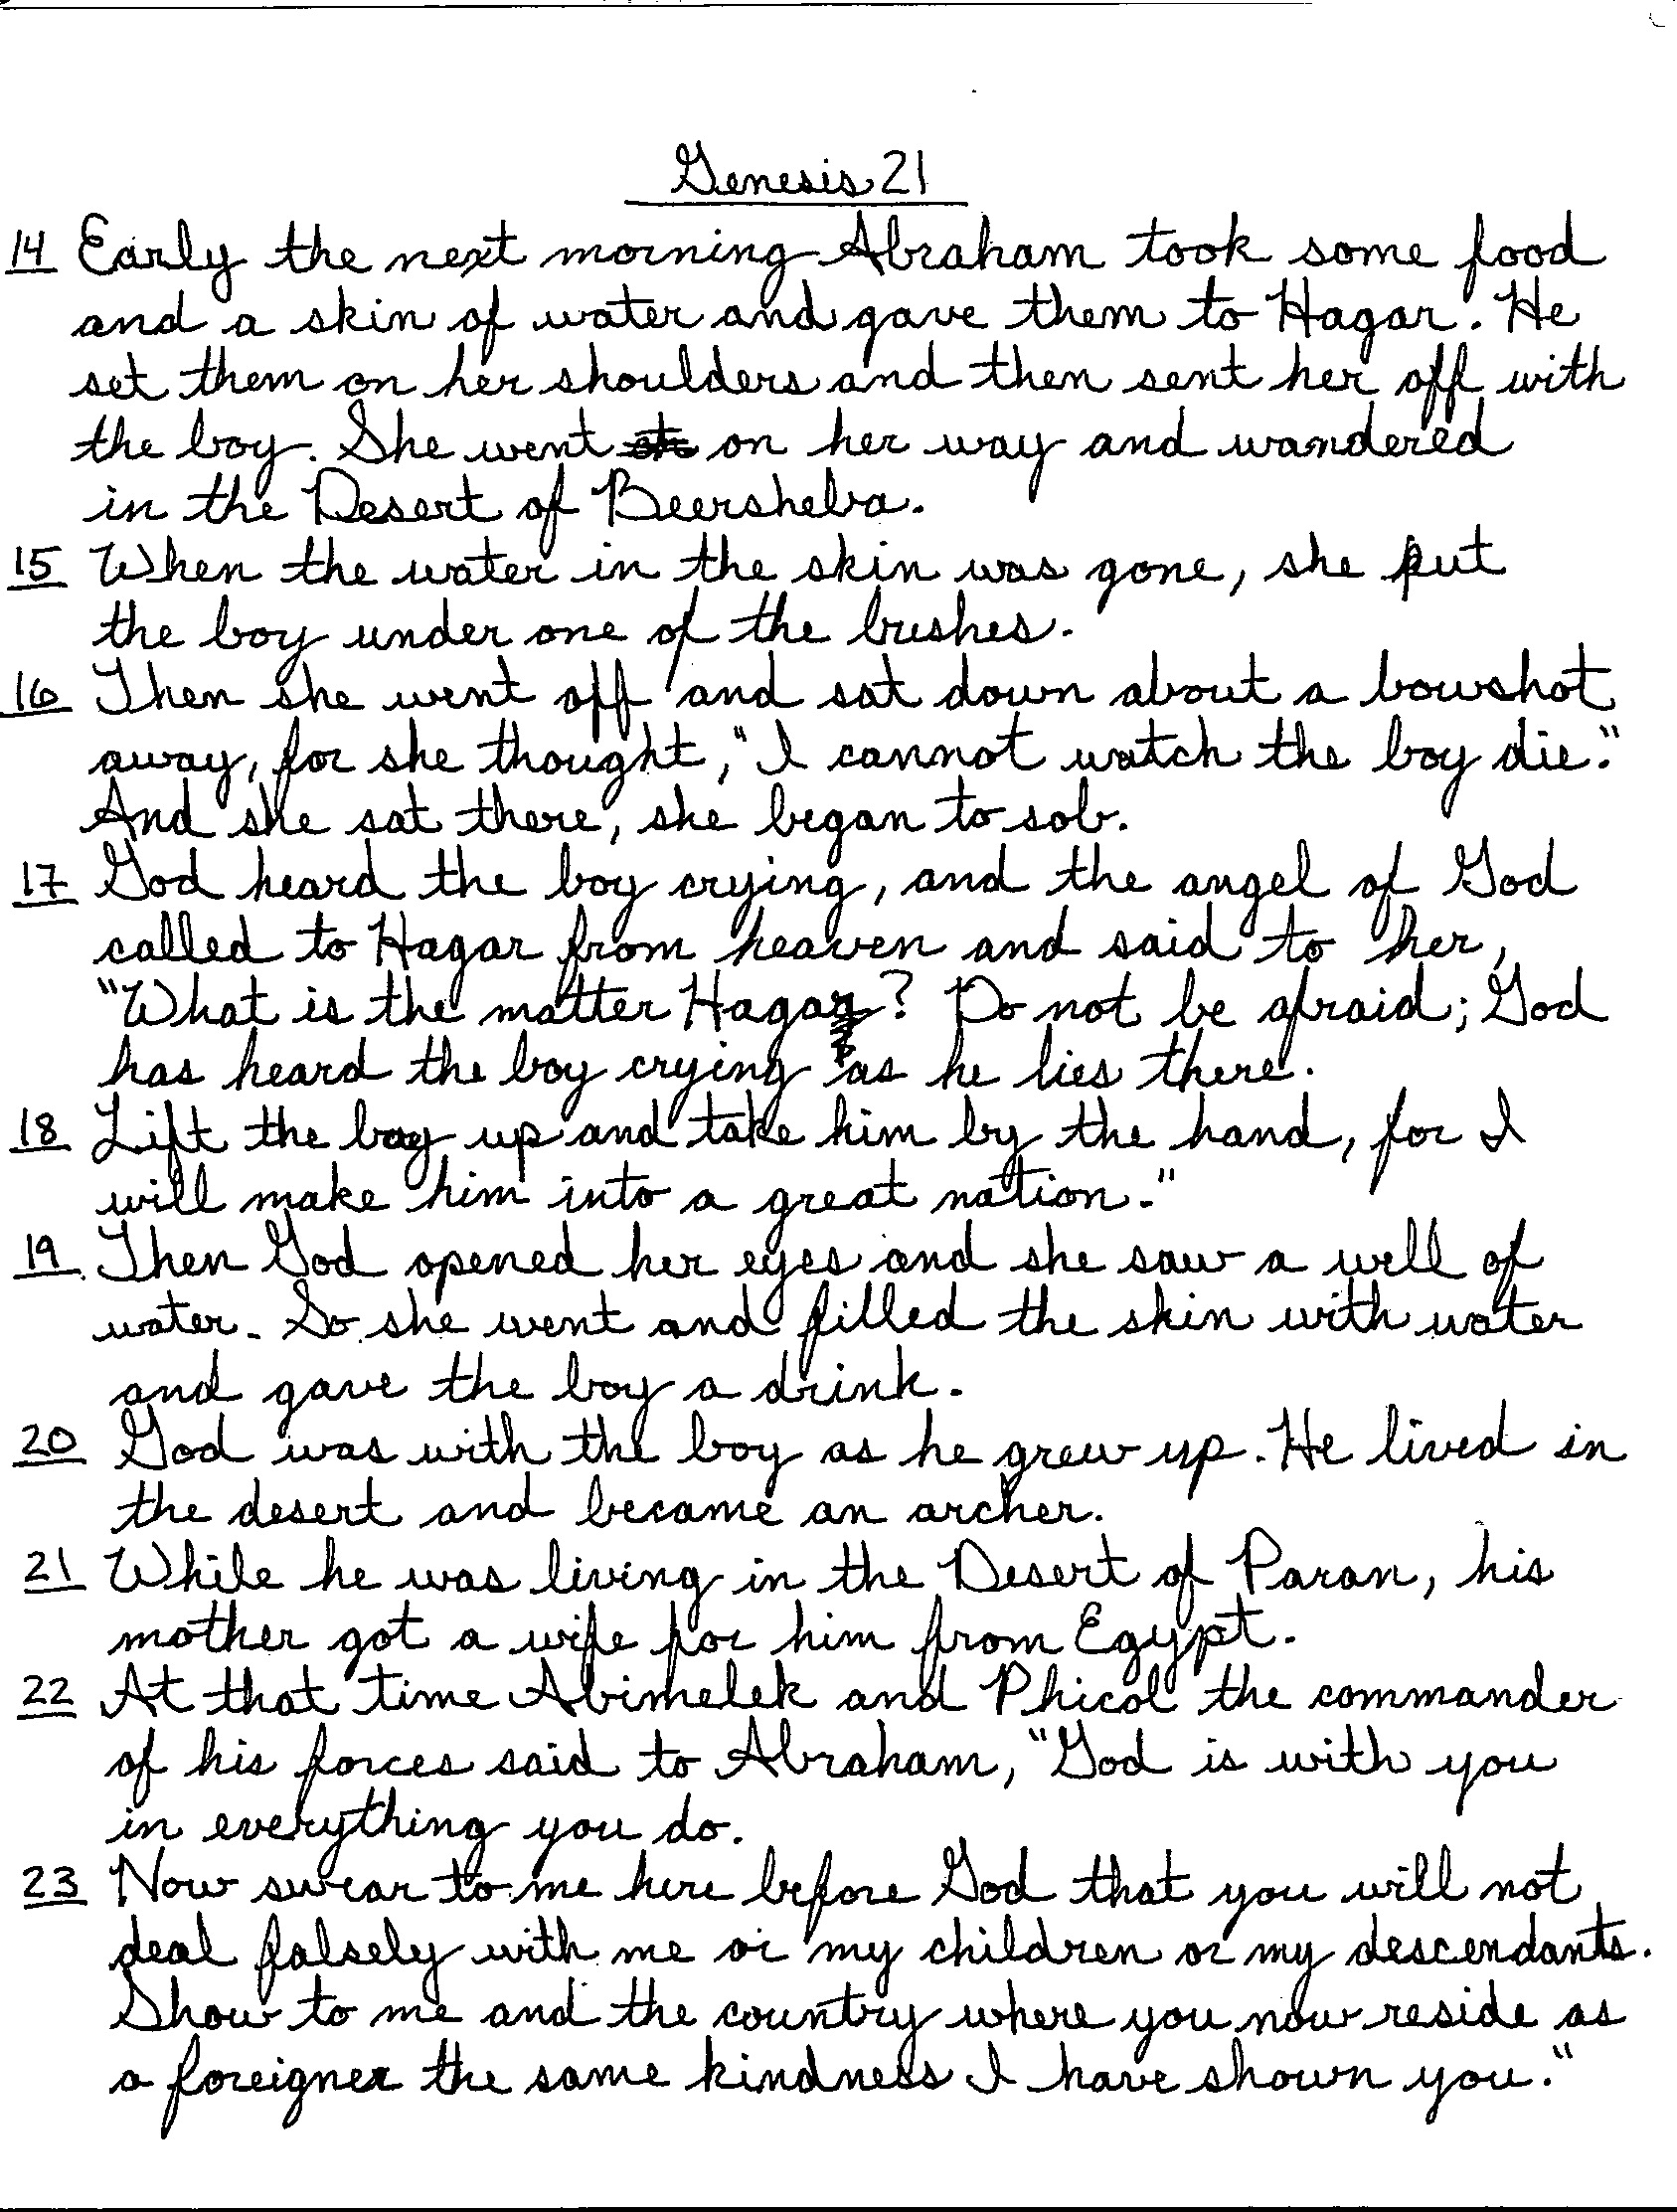 Genesis 21
14 Early the next morning Abraham took some food
and a skin of water and gave them to Hagar. He
set them on her shoulders and then sent her off with
the boy. She went on her way and wandered
in the Desert of Beersheba.
15 When the water in the skin was gone, she put
the boy under one of the bushes.
16 Then she went off and sat down about a bowshot
away, for she thought, "I cannot watch the boy die."
And she sat there, she began to sob.
17 God heard the boy crying, and the angel of God
called to Hagar from heaven and said to her,
"What is the matter Hagar? Do not be afraid; God
has heard the boy crying as he lies there.
18 Lift the boy up and take him by the hand, for I
will make him into a great nation."
19 Then God opened her eyes and she saw a well of
water. So she went and filled the skin with water
and gave the boy a drink.
20 God was with the boy as he grew up. He lived in
the desert and became an archer.
21 While he was living in the Desert of Paran, his
mother got a wife for him from Egypt.
22 At that time Abimelek and Phicol the commander
of his forces said to Abraham, "God is with you
in everything you do.
23 Now swear to me here before God that you will not
deal falsely with me or my children or my descendants.
Show to me and the country where you now reside as
a foreigner the same kindness I have shown you."